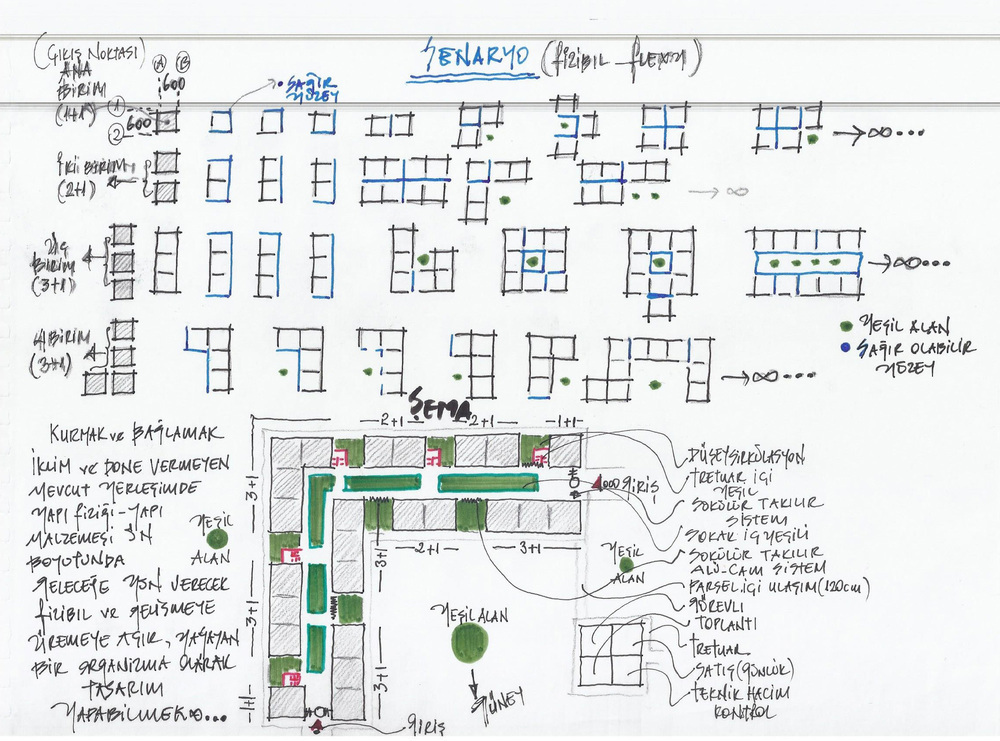 (ÇIKIŞ NOKTASI)
ANA
BİRİM
(1+1)
A B
600
1
2
600
SENARYO (FİZİBIL - FLEXIBIL)
• SAĞIR
YÜZEY
∞...
İKİ BİRİM
(2+1)
∞
ÜÇ
BİRİM
(3+1)
∞...
4 BİRİM
(3+1)
∞...
• YEŞİL ALAN
• SAĞIR OLABİLİR
YÜZEY
ŞEMA
2+1
2+1
1+1
3+1
3+1
1+1
2+1
3+1
3+1
3+1
KURMAK ve BAĞLAMAK
İKLİM ve DONE VERMEYEN
MEVCUT YERLEŞİMDE
YAPI FİZİĞİ - YAPI
MALZEMESİ
BOYUTUNDA
GELECEĞE YÖN VERECEK
FİZİBIL VE GELİŞMEYE
ÜREMEYE AÇIK, YAŞAYAN
BİR ORGANİZMA OLARAK
TASARIM
YAPABİLMEK∞...
YEŞİL
ALAN
YEŞİL
ALAN
YEŞİL ALAN
GÜNEY
GİRİŞ
GİRİŞ
DÜŞEY SİRKÜLASYON
TRETUAR İÇİ
YEŞİL
SÖKÜLÜR TAKILIR
SİSTEM
SOKAK İÇ YEŞİLİ
SÖKÜLÜR TAKILIR
ALÜ-CAM SİSTEM
PARSEL İÇİ ULAŞIM (120cm)
GÖREVLİ
TOPLANTI
TRETUAR
SATIŞ (GÜNLÜK)
TEKNİK HACİM
KONTROL